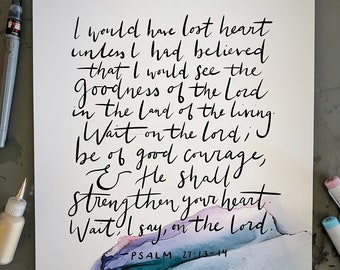 I would have lost heart
unless I had believed
that I would see the
goodness of the Lord
in the land of the living.
Wait on the Lord;
be of good courage,
& He shall
strengthen your heart.
Wait, I say, on the Lord.
PSALM 27:13-14